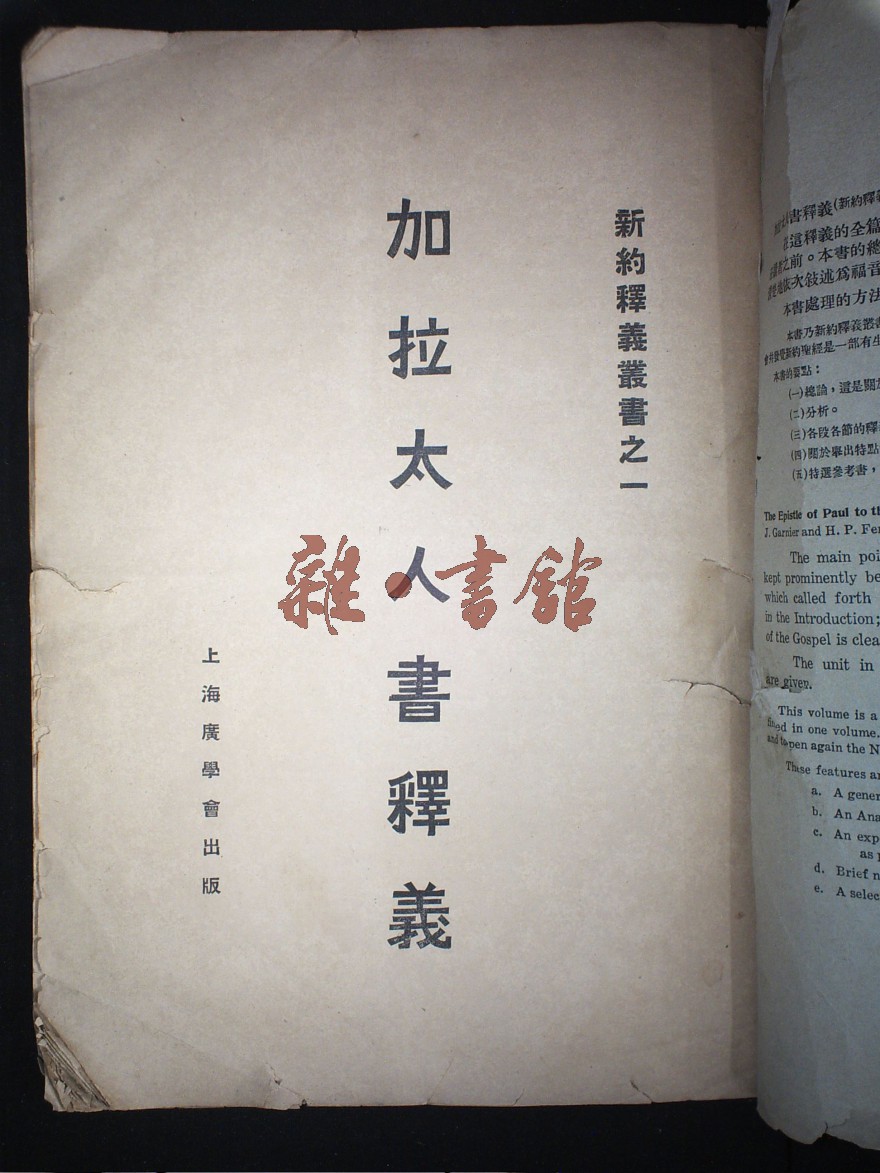 新約釋義叢書之一
加拉太人書釋義
上海廣學會出版
雜·書館
書釋義(新約釋義
這釋義的全篇
者之前。本書的總
依次敍述爲福音
本書處理的方法
本書乃新約釋義叢書
新約聖經是一部有生
本書的要點:
(一)總論,這是關於
(二)分析。
(三)各段各節的釋義
(四)關於舉出特點
(五)特選參考書,
The Epistle of Paul to th
J. Garnier and H. P. Fer
The main poi
kept prominently be
which called forth
in the Introduction;
of the Gospel is clea
The unit in
are given.
This volume is a
fined in one volume.
and to open again the N
These features ar
a. A gener
b. An Ana
c. An exp
as p
d. Brief n
e. A selec